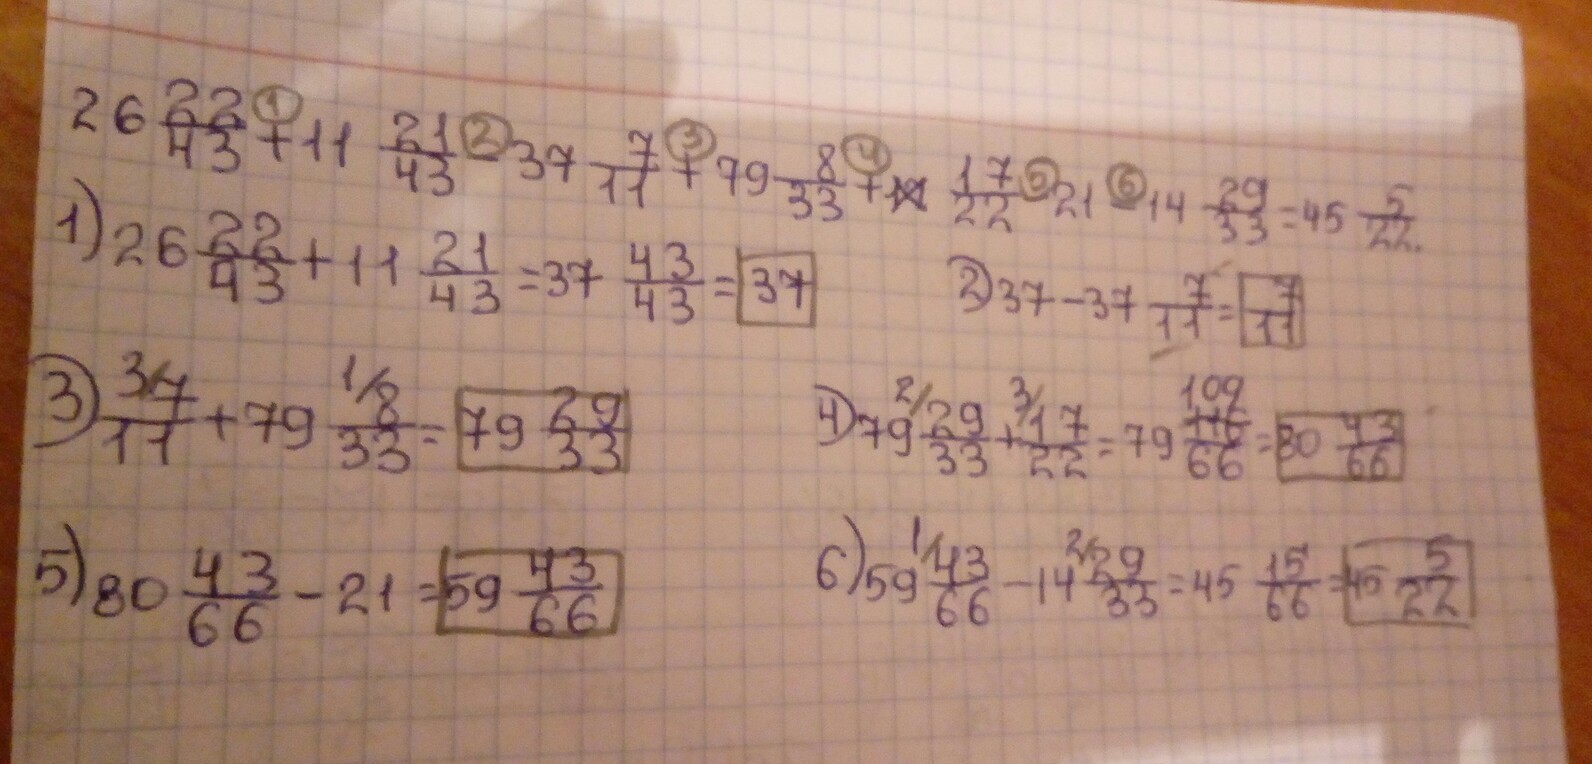 26 22/43 + 11 21/43 - 37 7/11 + 79 8/33 + 17/22 - 21 - 14 29/33 = 45 5/22.
① ② ③ ④ ⑤ ⑥
1) 26 22/43 + 11 21/43 = 37 43/43 = 37
2) 37 - 37 7/11 = 7/11
3) 3/ 7/11 + 79 1/ 8/33 = 79 29/33
4) 79 2/ 29/33 + 3/ 17/22 = 79 109/66 = 80 43/66
5) 80 43/66 - 21 = 59 43/66
6) 59 1/ 43/66 - 14 2/ 29/33 = 45 15/66 = 45 5/22